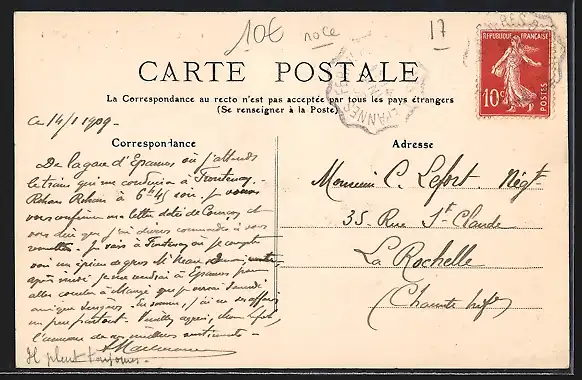 10€ noce 17
CARTE POSTALE
La Correspondance au recto n'est pas acceptée par tous les pays étrangers
(Se renseigner à la Poste)
REPUBLIQUE FRANÇAISE
10c
POSTES
EPANNES
Ce 14/1 1909-
Correspondance
Adresse
De la gare d'Epannes où j'attends
le train qui me conduira à Frontenay
Rohan Rohan à 6h45 soir je
vous confirme ma lettre datée de Courçon et
vous dis que j'ai commandes à vous
. Je vais à Frontenay où je compte
voir un épicier de gros Mr
après je me rendrai à Epannes pour
aller coucher à Mauzé que je verrai
. En somme, j'ai
un peu partout. Veuillez agréer, cher Lefort,
l'assurance de mes meilleurs sentiments
Il pleut toujours.
Monsieur C. Lefort. Négt
35- Rue St Claude
La Rochelle
(Charente Infre)